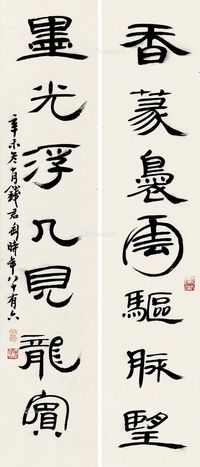 香篆裊雲驅脉望
墨光浮几見龍賓
辛未冬十月錢君匋時年八十有六